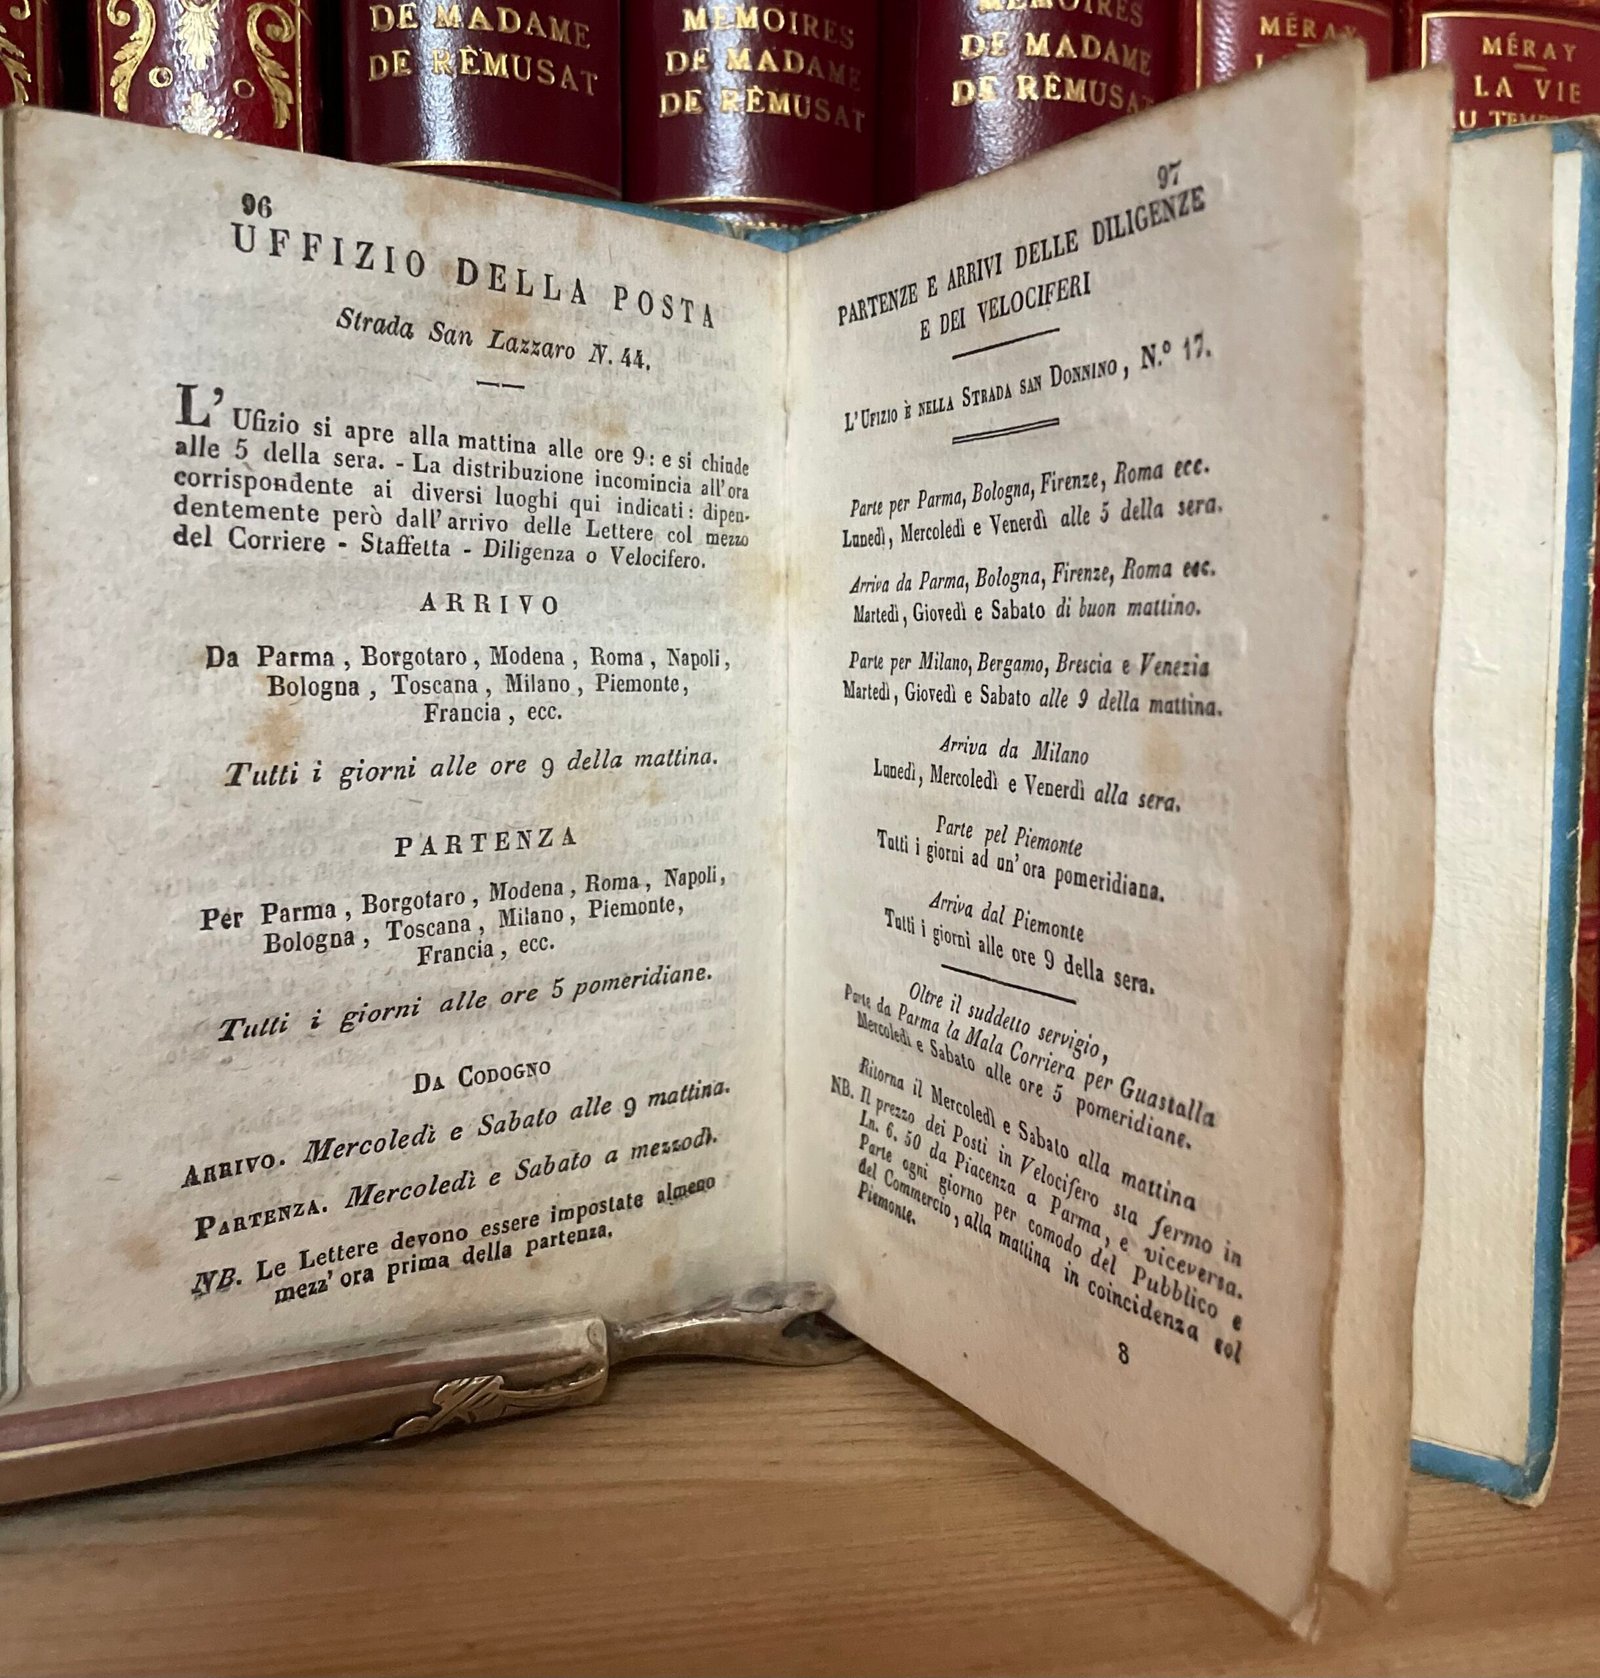 DE MADAME
DE RÉMUSAT
MÉMOIRES
DE MADAME
DE RÉMUSAT
MÉMOIRES
DE MADAME
DE RÉMUSAT
MÉRAY
MÉRAY
LA VIE
96
UFFIZIO DELLA POSTA
Strada San Lazzaro N. 44.
L' Ufizio si apre alla mattina alle ore 9: e si chiude
alle 5 della sera. - La distribuzione incomincia all'ora
corrispondente ai diversi luoghi qui indicati: dipen-
dentemente però dall'arrivo delle Lettere col mezzo
del Corriere - Staffetta - Diligenza o Velocifero.
ARRIVO
Da Parma, Borgotaro, Modena, Roma, Napoli,
Bologna, Toscana, Milano, Piemonte,
Francia, ecc.
Tutti i giorni alle ore 9 della mattina.
PARTENZA
Per Parma, Borgotaro, Modena, Roma, Napoli,
Bologna, Toscana, Milano, Piemonte,
Francia, ecc.
Tutti i giorni alle ore 5 pomeridiane.
DA CODOGNO
ARRIVO. Mercoledì e Sabato alle 9 mattina.
PARTENZA. Mercoledì e Sabato a mezzodì.
NB. Le Lettere devono essere impostate almeno
mezz'ora prima della partenza.
97
PARTENZE E ARRIVI DELLE DILIGENZE
E DEI VELOCIFERI
L'UFIZIO È NELLA STRADA SAN DONNINO, N.º 17.
Parte per Parma, Bologna, Firenze, Roma ecc.
Lunedì, Mercoledì e Venerdì alle 5 della sera.
Arriva da Parma, Bologna, Firenze, Roma ecc.
Martedì, Giovedì e Sabato di buon mattino.
Parte per Milano, Bergamo, Brescia e Venezia
Martedì, Giovedì e Sabato alle 9 della mattina.
Arriva da Milano
Lunedì, Mercoledì e Venerdì alla sera.
Parte pel Piemonte
Tutti i giorni ad un'ora pomeridiana.
Arriva dal Piemonte
Tutti i giorni alle ore 9 della sera.
Oltre il suddetto servigio,
Parte da Parma la Mala Corriera per Guastalla
Mercoledì e Sabato alle ore 5 pomeridiane.
Ritorna il Mercoledì e Sabato alla mattina
NB. Il prezzo dei Posti in Velocifero sta fermo in
Ln. 6. 50 da Piacenza a Parma, e viceversa.
Parte ogni giorno per comodo del Pubblico e
del Commercio, alla mattina in coincidenza col
Piemonte.
8